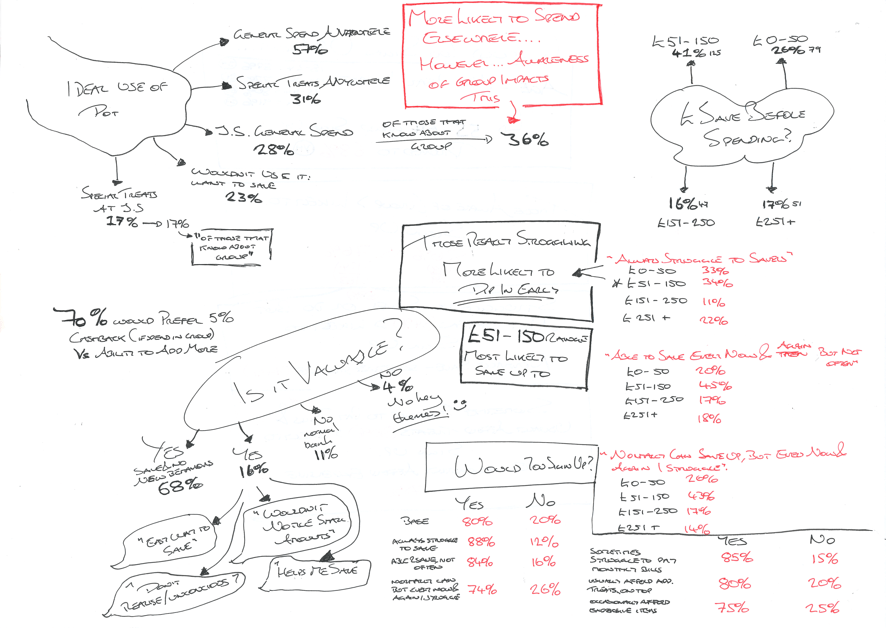 IDEAL USE OF
POT
GENERAL SPEND ANYWHERE
57%
SPECIAL TREATS, ANYWHERE
31%
J.S. GENERAL SPEND
28%
OF THOSE THAT
KNOW ABOUT
GROUP
36%
WOULDN'T USE IT;
WANT TO SAVE
23%
SPECIAL TREATS
AT J.S
17% → 17%
"OF THOSE THAT
KNOW ABOUT
GROUP"
MORE LIKELY TO SPEND
ELSEWHERE....
HOWEVER... AWARENESS
OF GROUP IMPACTS
THIS
£51-150
41% 125
£0-50
26% 79
£ SAVE BEFORE
SPENDING?
16% 47
£151-250
17% 51
£251+
THOSE REALLY STRUGGLING
MORE LIKELY TO
DIP IN EARLY
"ALWAYS STRUGGLE TO SAVERS"
£0-50 33%
* £51-150 34%
£151-250 11%
£251+ 22%
£51-150 RANGE
MOST LIKELY TO
SAVE UP TO
"ABLE TO SAVE EVERY NOW & AGAIN BUT NOT
OFTEN"
£0-50 20%
£51-150 45%
£151-250 17%
£251+ 18%
70% WOULD PREFER 5%
CASHBACK (IF SPEND IN GROUP)
VS ABILITY TO ADD MORE
IS IT VALUABLE?
NO
4%
NO KEY
THEMES!
NO
NORMAL
BANK
11%
YES
16%
YES
NEW BEHAVIOUR
68%
"EASY WAY TO
SAVE"
"WOULDN'T
NOTICE SMALL
AMOUNTS"
"DON'T
REALISE/UNCONSCIOUS?
"HELPS ME SAVE
WOULD YOU SIGN UP?
YES NO
BASE 80% 20%
ALWAYS STRUGGLE
TO SAVE 88% 12%
ABLE 2 SAVE, NOT
OFTEN 84% 16%
NORMALLY CAN
BUT EVERY NOW &
AGAIN I STRUGGLE 74% 26%
"NORMALLY CAN SAVE UP, BUT EVERY NOW &
AGAIN I STRUGGLE"
£0-50 26%
£51-150 43%
£151-250 17%
£251+ 14%
YES NO
SOMETIMES
STRUGGLE TO PAY
MONTHLY BILLS 85% 15%
USUALLY AFFORD ADD.
TREATS, ON TOP 80% 20%
OCCASIONALLY AFFORD
EXPENSIVE ITEMS 75% 25%